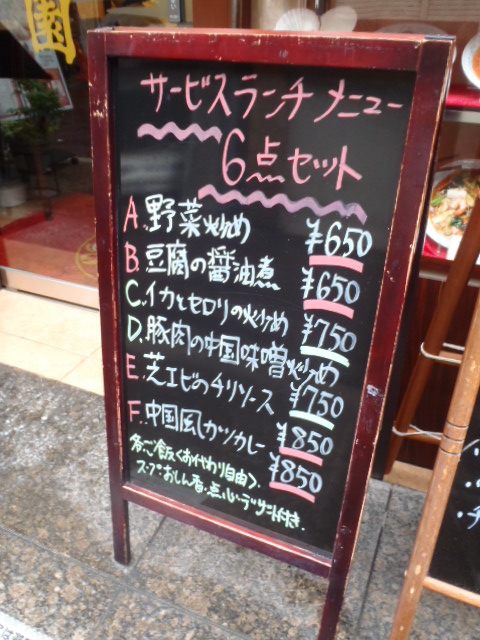 園
サービスランチメニュー
6点セット
A. 野菜炒め ¥650
B. 豆腐の醤油煮 ¥650
C. イカとセロリの炒め ¥750
D. 豚肉の中国味噌炒め ¥750
E. 芝エビのチリソース ¥850
F. 中国風カツカレー ¥850
各、ご飯くおやわり自由>
スープ・おしん香・点心・デザート付き.